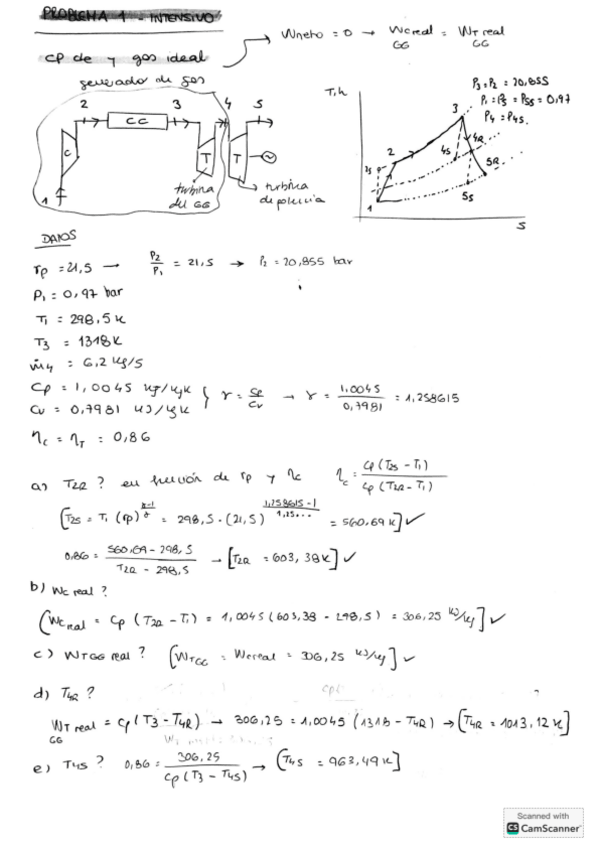 PROBLEMA 1 - INTENSIVO
Wneto = 0 → Wc real = WT real
GG GG
cp de y gas ideal
generador de gas
2 3 4 5
CC
C T T
1
turbina del GG
turbina de potencia
T, h
P3 = P2 = 20,855
P1 = P5 = P5s = 0,97
P4 = P4s
3
2
2s
4s
4R
5R
5s
1
s
DATOS
rp = 21,5 → P2/P1 = 21,5 → P2 = 20,855 bar
P1 = 0,97 bar
T1 = 298,5 K
T3 = 1318 K
ṁ4 = 6,2 kg/s
Cp = 1,0045 kJ/kgK } γ = Cp/Cv → γ = 1,0045/0,7981 = 1,258615
Cv = 0,7981 kJ/kgK
ηc = ηT = 0,86
a) T2R ? en función de rp y ηc ηc = cp (T2s - T1) / cp (T2R - T1)
[T2s = T1 (rp)^(γ-1/γ) = 298,5 · (21,5)^(1,258615-1/1,25...) = 560,69 K] ✓
0,86 = 560,69 - 298,5 / T2R - 298,5 → [T2R = 603,38K] ✓
b) Wc real ?
[Wc real = Cp (T2R - T1) = 1,0045 (603,38 - 298,5) = 306,25 kJ/kg] ✓
c) WTGG real ? [WTGG = Wcreal = 306,25 kJ/kg] ✓
d) T4R ?
WT real = cp (T3 - T4R) → 306,25 = 1,0045 (1318 - T4R) → [T4R = 1013,12 K]
GG
e) T4s ? 0,86 = 306,25 / cp (T3 - T4s) → [T4s = 963,49 K]
Scanned with
CS CamScanner